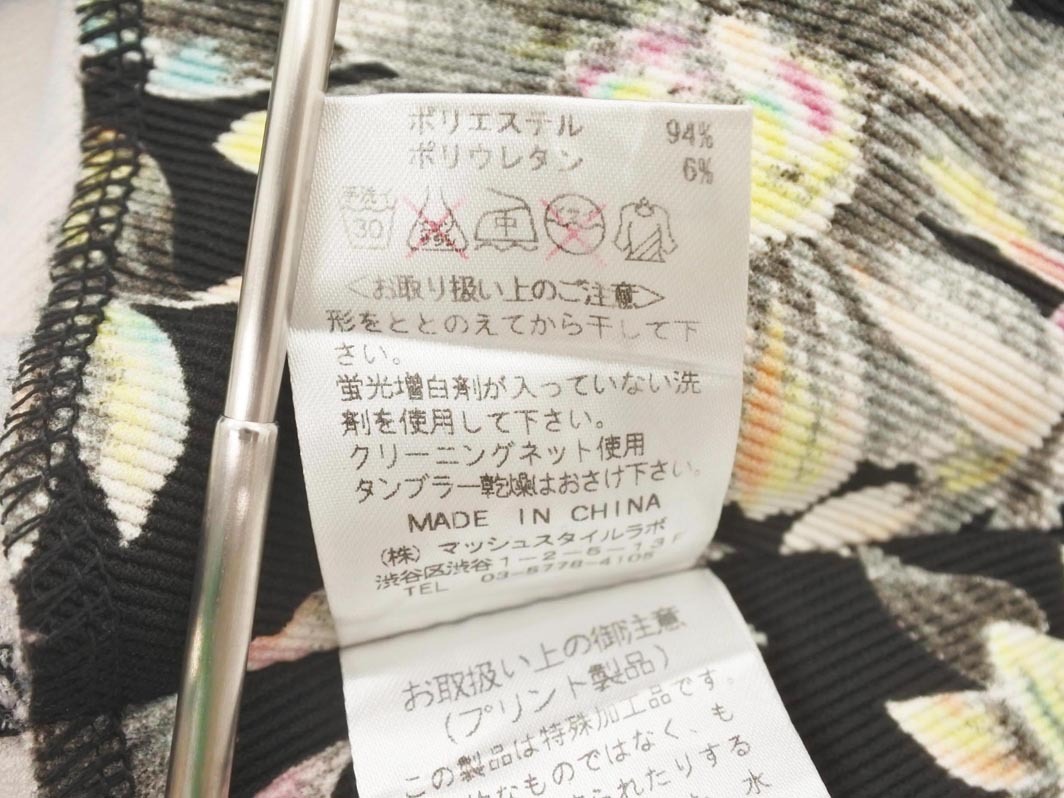 ポリエステル 94%
ポリウレタン 6%
手洗イ
30
中
<お取り扱い上のご注意>
形をととのえてから干して下
さい。
蛍光増白剤が入っていない洗
剤を使用して下さい。
クリーニングネット使用
タンブラー乾燥はおさけ下さい。
MADE IN CHINA
(株) マッシュスタイルラボ
渋谷区渋谷1-2-5-13F
TEL 03-5778-4105
お取扱い上の御注意
(プリント製品)
この製品は特殊加工品です。
なものではなく、も
られたりする
水